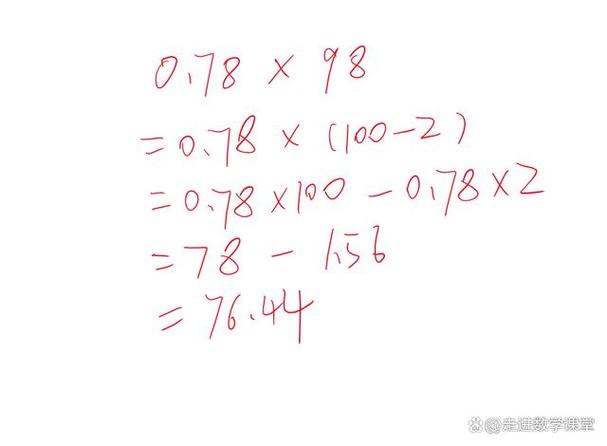 0.78 × 98
=0.78 × (100-2)
=0.78×100 - 0.78×2
=78 - 1.56
=76.44
@走进数学课堂